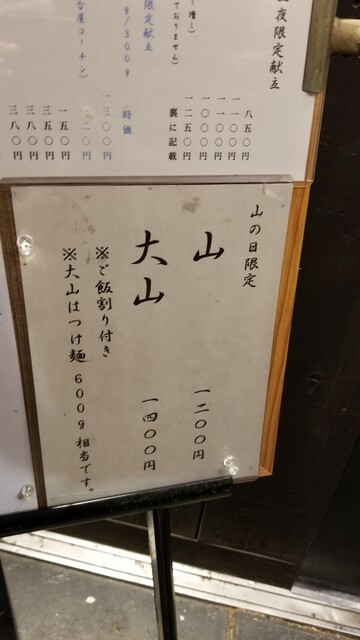 夜限定献立
八五〇円
一一〇〇円
一〇〇〇円
一二五〇円
裏に記載
ておりません)
限定献立
時価
一三〇〇円
二〇円
一五〇円
三五〇円
三八〇円
三八〇円
山の日限定
山 一二〇〇円
大山 一四〇〇円
※ご飯割り付き
※大山はつけ麺600g相当です。